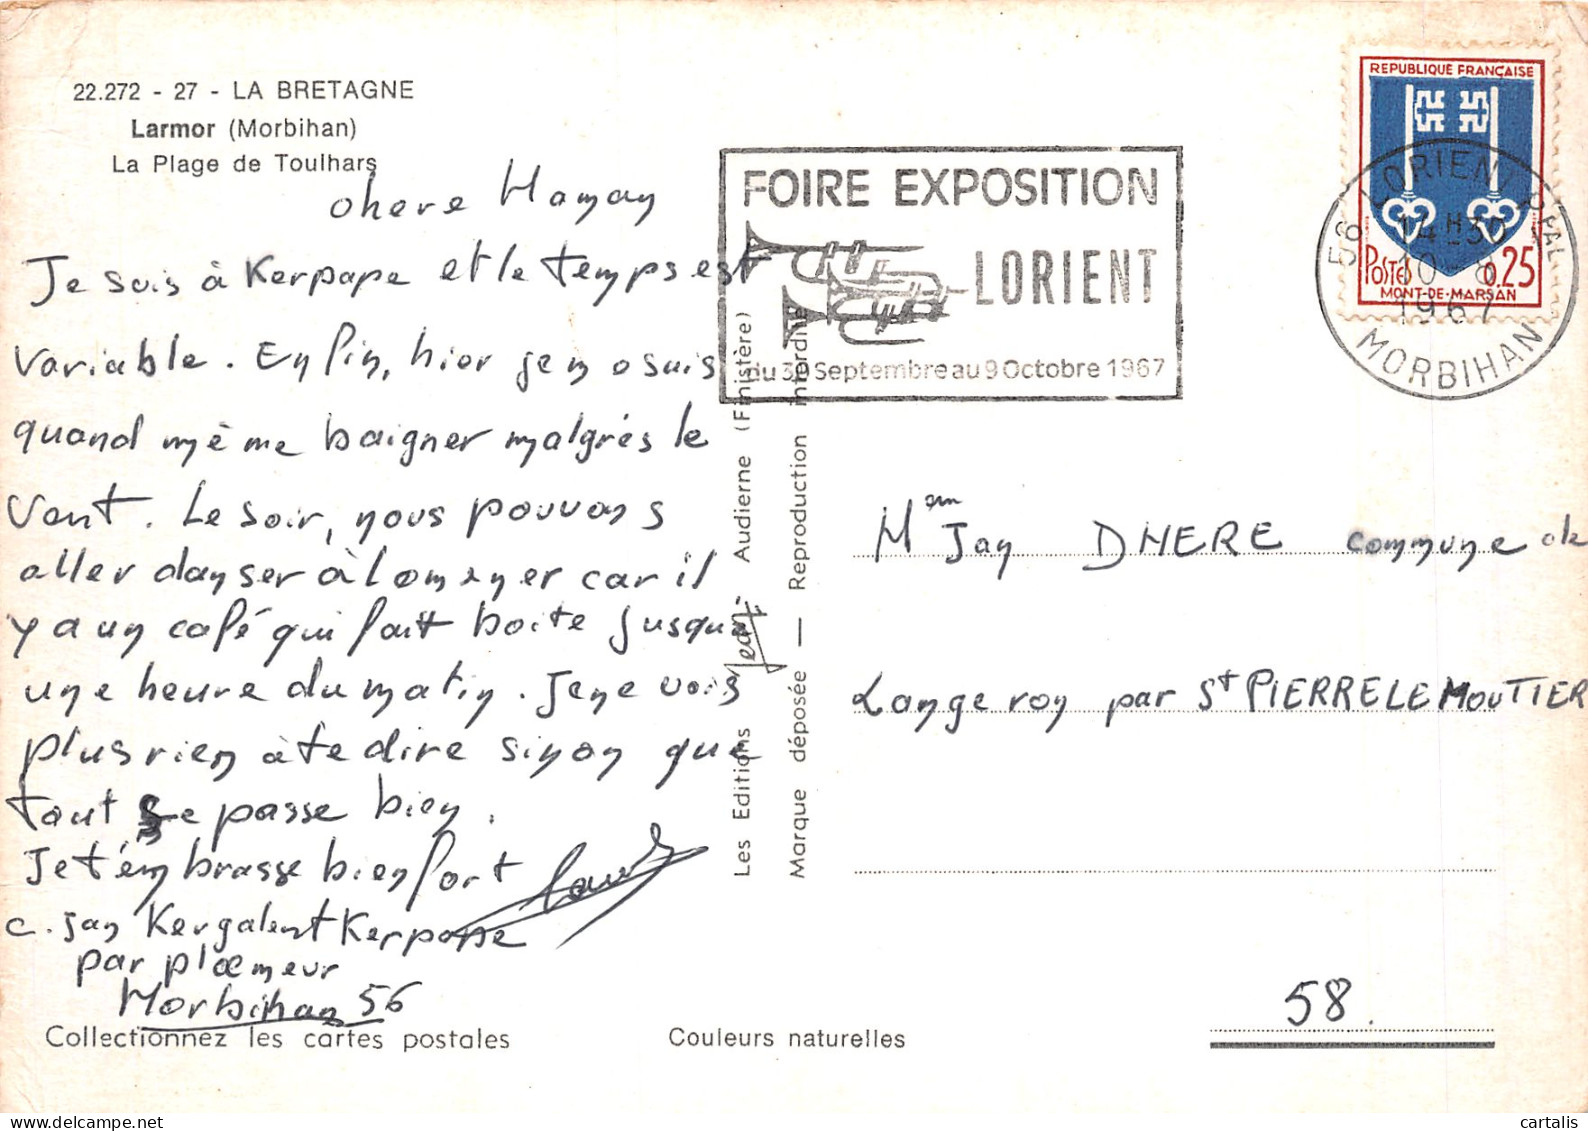 22.272 - 27 - LA BRETAGNE
Larmor (Morbihan)
La Plage de Toulhars
chere Maman
Je suis à Kerpape et le temps est
variable. Enfin, hier je m osuis
quand même baigner malgrés le
vent. Le soir, nous pouvons
aller danser à Lomener car il
y a un café qui fait boite jusqu'
une heure du matin. Je ne vois
plus rien à te dire sinon que
tout se passe bien.
Je t'embrasse bien fort
c. Jan Kergalent Kerpape
par plœmeur
Morbihan 56
Collectionnez les cartes postales
Couleurs naturelles
Les Editions Jean Audierne (Finistère)
Marque déposée — Reproduction interdite
FOIRE EXPOSITION
LORIENT
du 30 Septembre au 9 Octobre 1967
REPUBLIQUE FRANÇAISE
POSTES 0,25
MONT-DE-MARSAN
56 LORIENT PAL
14 H 30
10 - 8
1967
MORBIHAN
Mem Jan DHERE commune de
Langeron par St PIERRE LE MOUTIER
58.
cartalis
delcampe.net